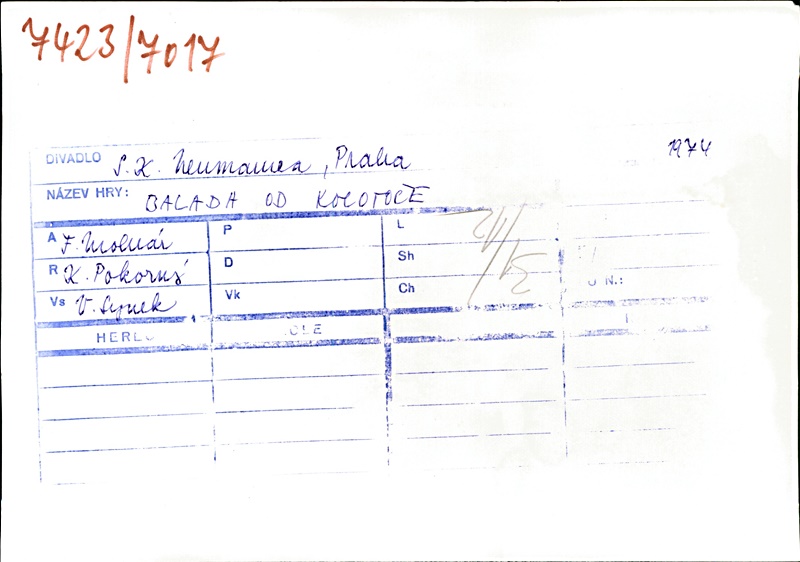 7423/7017
DIVADLO S. K. Neumanna, Praha 1974
NÁZEV HRY: BALADA OD KOLOTOČE
A F. Molnár P L
R K. Pokorný D Sh
Vs V. Synek Vk Ch